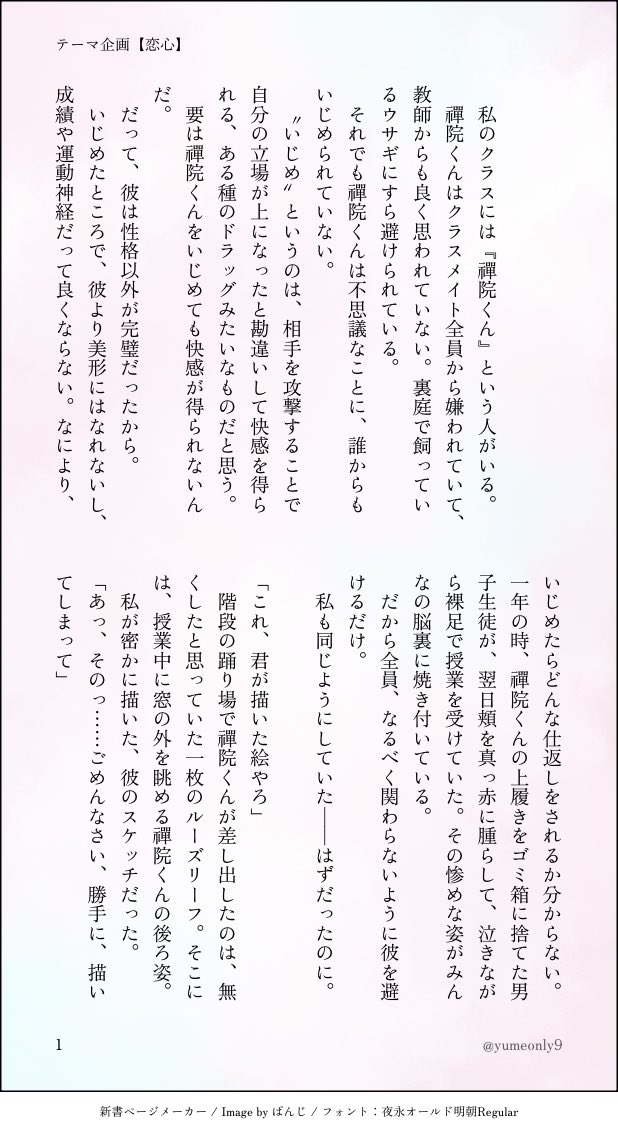 テーマ企画【恋心】
私のクラスには『禪院くん』という人がいる。
禪院くんはクラスメイト全員から嫌われていて、
教師からも良く思われていない。裏庭で飼ってい
るウサギにすら避けられている。
それでも禪院くんは不思議なことに、誰からも
いじめられていない。
〝いじめ〟というのは、相手を攻撃することで
自分の立場が上になったと勘違いして快感を得ら
れる、ある種のドラッグみたいなものだと思う。
要は禪院くんをいじめても快感が得られないん
だ。
だって、彼は性格以外が完璧だったから。
いじめたところで、彼より美形にはなれないし、
成績や運動神経だって良くならない。なにより、
いじめたらどんな仕返しをされるか分からない。
一年の時、禪院くんの上履きをゴミ箱に捨てた男
子生徒が、翌日頬を真っ赤に腫らして、泣きなが
ら裸足で授業を受けていた。その惨めな姿がみん
なの脳裏に焼き付いている。
だから全員、なるべく関わらないように彼を避
けるだけ。
私も同じようにしていた――はずだったのに。
「これ、君が描いた絵やろ」
階段の踊り場で禪院くんが差し出したのは、無
くしたと思っていた一枚のルーズリーフ。そこに
は、授業中に窓の外を眺める禪院くんの後ろ姿。
私が密かに描いた、彼のスケッチだった。
「あっ、そのっ……ごめんなさい、勝手に、描い
てしまって」
1
@yumeonly9
新書ページメーカー / Image by ぱんじ / フォント：夜永オールド明朝Regular